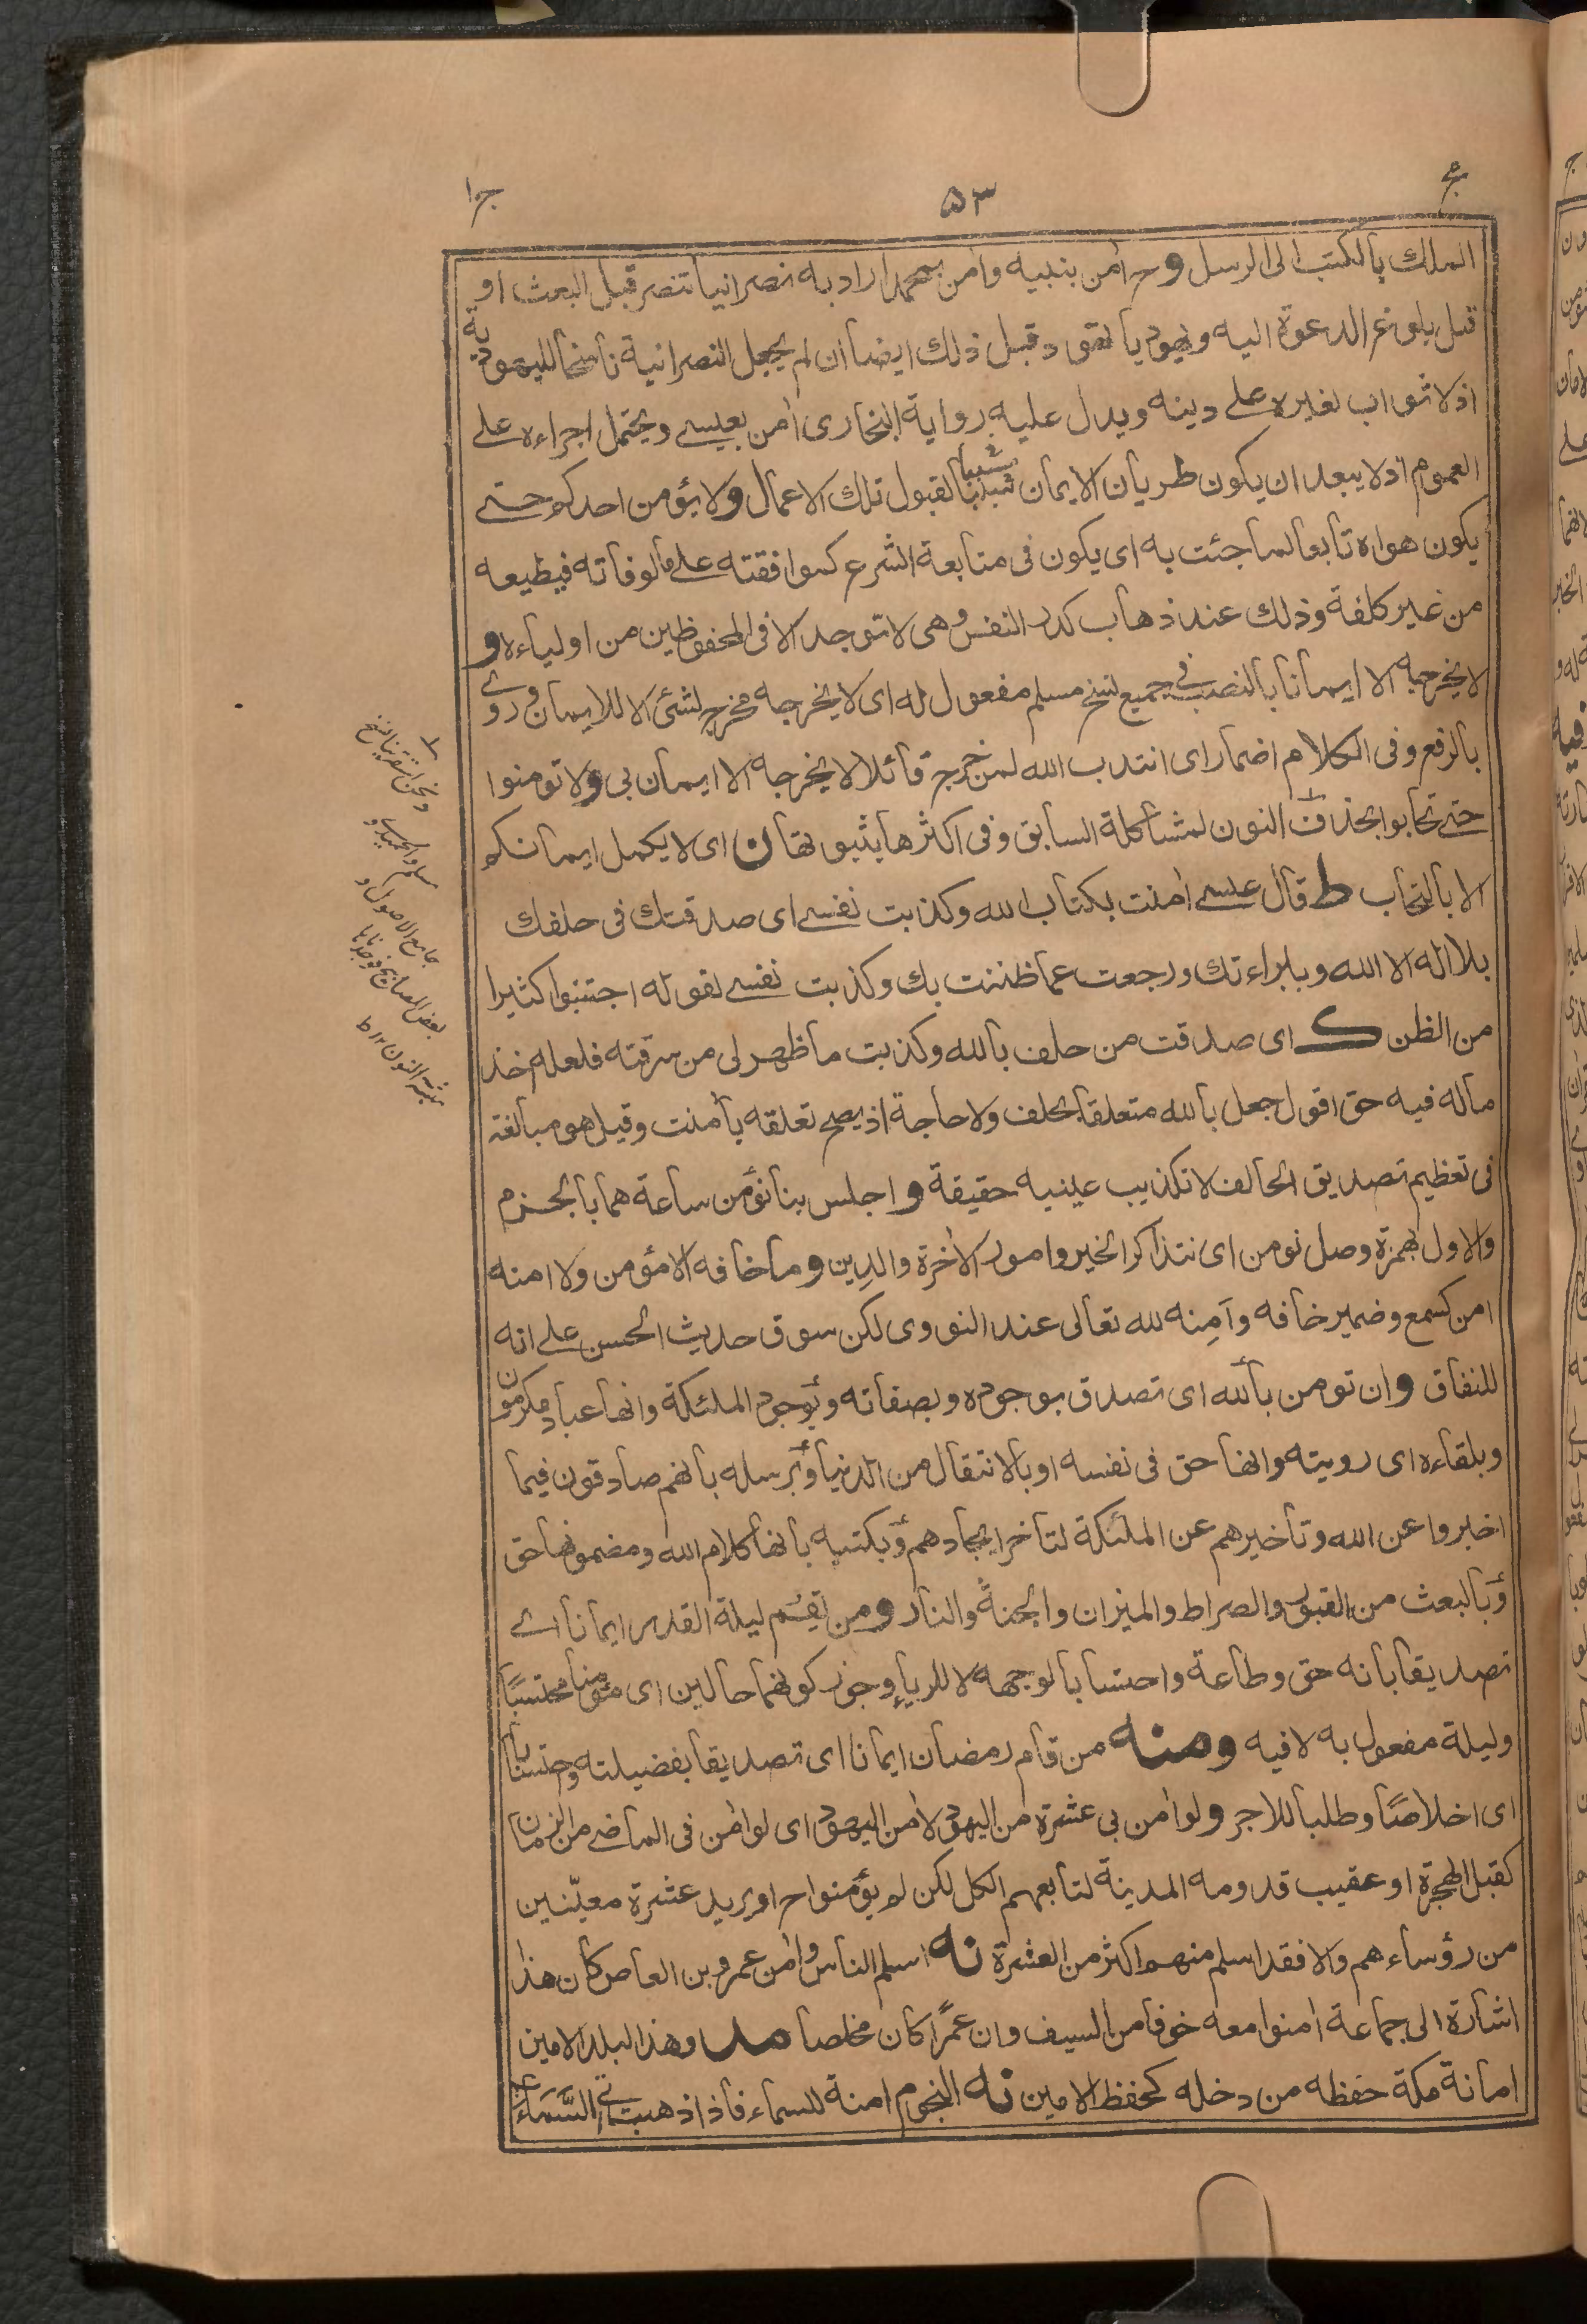 ج١
٥٣
الملك بالكتب الى الرسل و ح امن بنبيه وامن بمحمد اراد به نصرانيا تنصر قبل البعث او
قبل بلوغ الدعوة اليه ويهوديا تهود قبل ذلك ايضا ان لم يجعل النصرانية ناسخا لليهودية
اذ لا ثواب لغيره على دينه ويدل عليه رواية البخارى امن بعيسى ويحتمل اجراءه على
العموم اذ لا يبعد ان يكون طريان الايمان سببا لقبول تلك الاعمال و لا يؤمن احدكم حتى
يكون هواه تابعا لما جئت به اى يكون فى متابعة الشرع كموافقته على مالوفاته فيطيعه
من غير كلفة وذلك عند ذهاب كدر النفس وهى لا توجد الا فى المحفوظين من اولياءه و
لا يخرجه الا ايمانا بالنصب فى جميع نسخ مسلم مفعول له اى لا يخرجه مخرج لشئ الا للايمان وروى
بالرفع وفى الكلام اضمار اى انتدب الله لمن خرج قائلا لا يخرجه الا ايمان بى و لا تومنوا
حتى تحابوا بحذف النون لمشاكلة السابق وفى اكثرها بثبوتها ن اى لا يكمل ايمانكم
الا بالتحاب ط قال عيسى امنت بكتاب الله وكذبت نفسى اى صدقتك فى حلفك
بلا اله الا الله وببراءتك ورجعت عما ظننت بك وكذبت نفسى لقوله اجتنبوا كثيرا
من الظن ك اى صدقت من حلف بالله وكذبت ما ظهر لى من سرقته فلعله اخذ
ماله فيه حق اقول جعل بالله متعلقا بحلف ولا حاجة اذ يصح تعلقه بامنت وقيل هو مبالغة
فى تعظيم تصديق الحالف لا تكذيب عينيه حقيقة و اجلس بنا نؤمن ساعة هما بالجزم
والاول بهمزة وصل نومن اى نتذاكر الخير وامور الاخرة والدين و ما خافه الا مؤمن ولا امنه
امن كسمع وضمير خافه وآمِنه لله تعالى عند النووى لكن سوق حديث الحسن على انه
للنفاق و ان تومن بالله اى تصدق بوجوده وبصفاته وبوجود الملئكة وانها عباد مكرمون
وبلقاءه اى رويته وانها حق فى نفسه او بالانتقال من الدنيا وبرسله بانهم صادقون فيما
اخبروا عن الله وتاخيرهم عن الملئكة لتاخر ايجادهم وبكتبه بانها كلام الله ومضمونها حق
وبالبعث من القبور والصراط والميزان والجنة والنار و من يقم ليلة القدر ايمانا اى
تصديقا بانه حق وطاعة واحتسابا لوجهه لا للرياء وجوز كونهما حالين اى مؤمنا محتسبا
وليلة مفعول به لا فيه ومنه من قام رمضان ايمانا اى تصديقا بفضيلته واحتسابا
اى اخلاصا وطلبا للاجر و لو امن بى عشرة من اليهود لامن اليهود اى لو امن فى الماضى من الزمان
كقبل الهجرة او عقيب قدومه المدينة لتابعهم الكل لكن لم يؤمنوا ح او يريد عشرة معيّنين
من رؤساءهم والا فقد اسلم منهم اكثر من العشرة نه اسلم الناس وامن عمرو بن العاص كان هذا
اشارة الى جماعة امنوا معه خوفا من السيف وان عمرًا كان مخلصا مد وهذا البلد الامين
امانة مكة حفظه من دخله كحفظ الامين نه النجوم امنة للسماء فاذا ذهبت اتى السَّمَاءَ
ونحن استقرينا نسخ
مسلم والحميدى و
جامع الاصول و
بعض المصابيح فوجدناها
مثبتة النون ١٢ ط